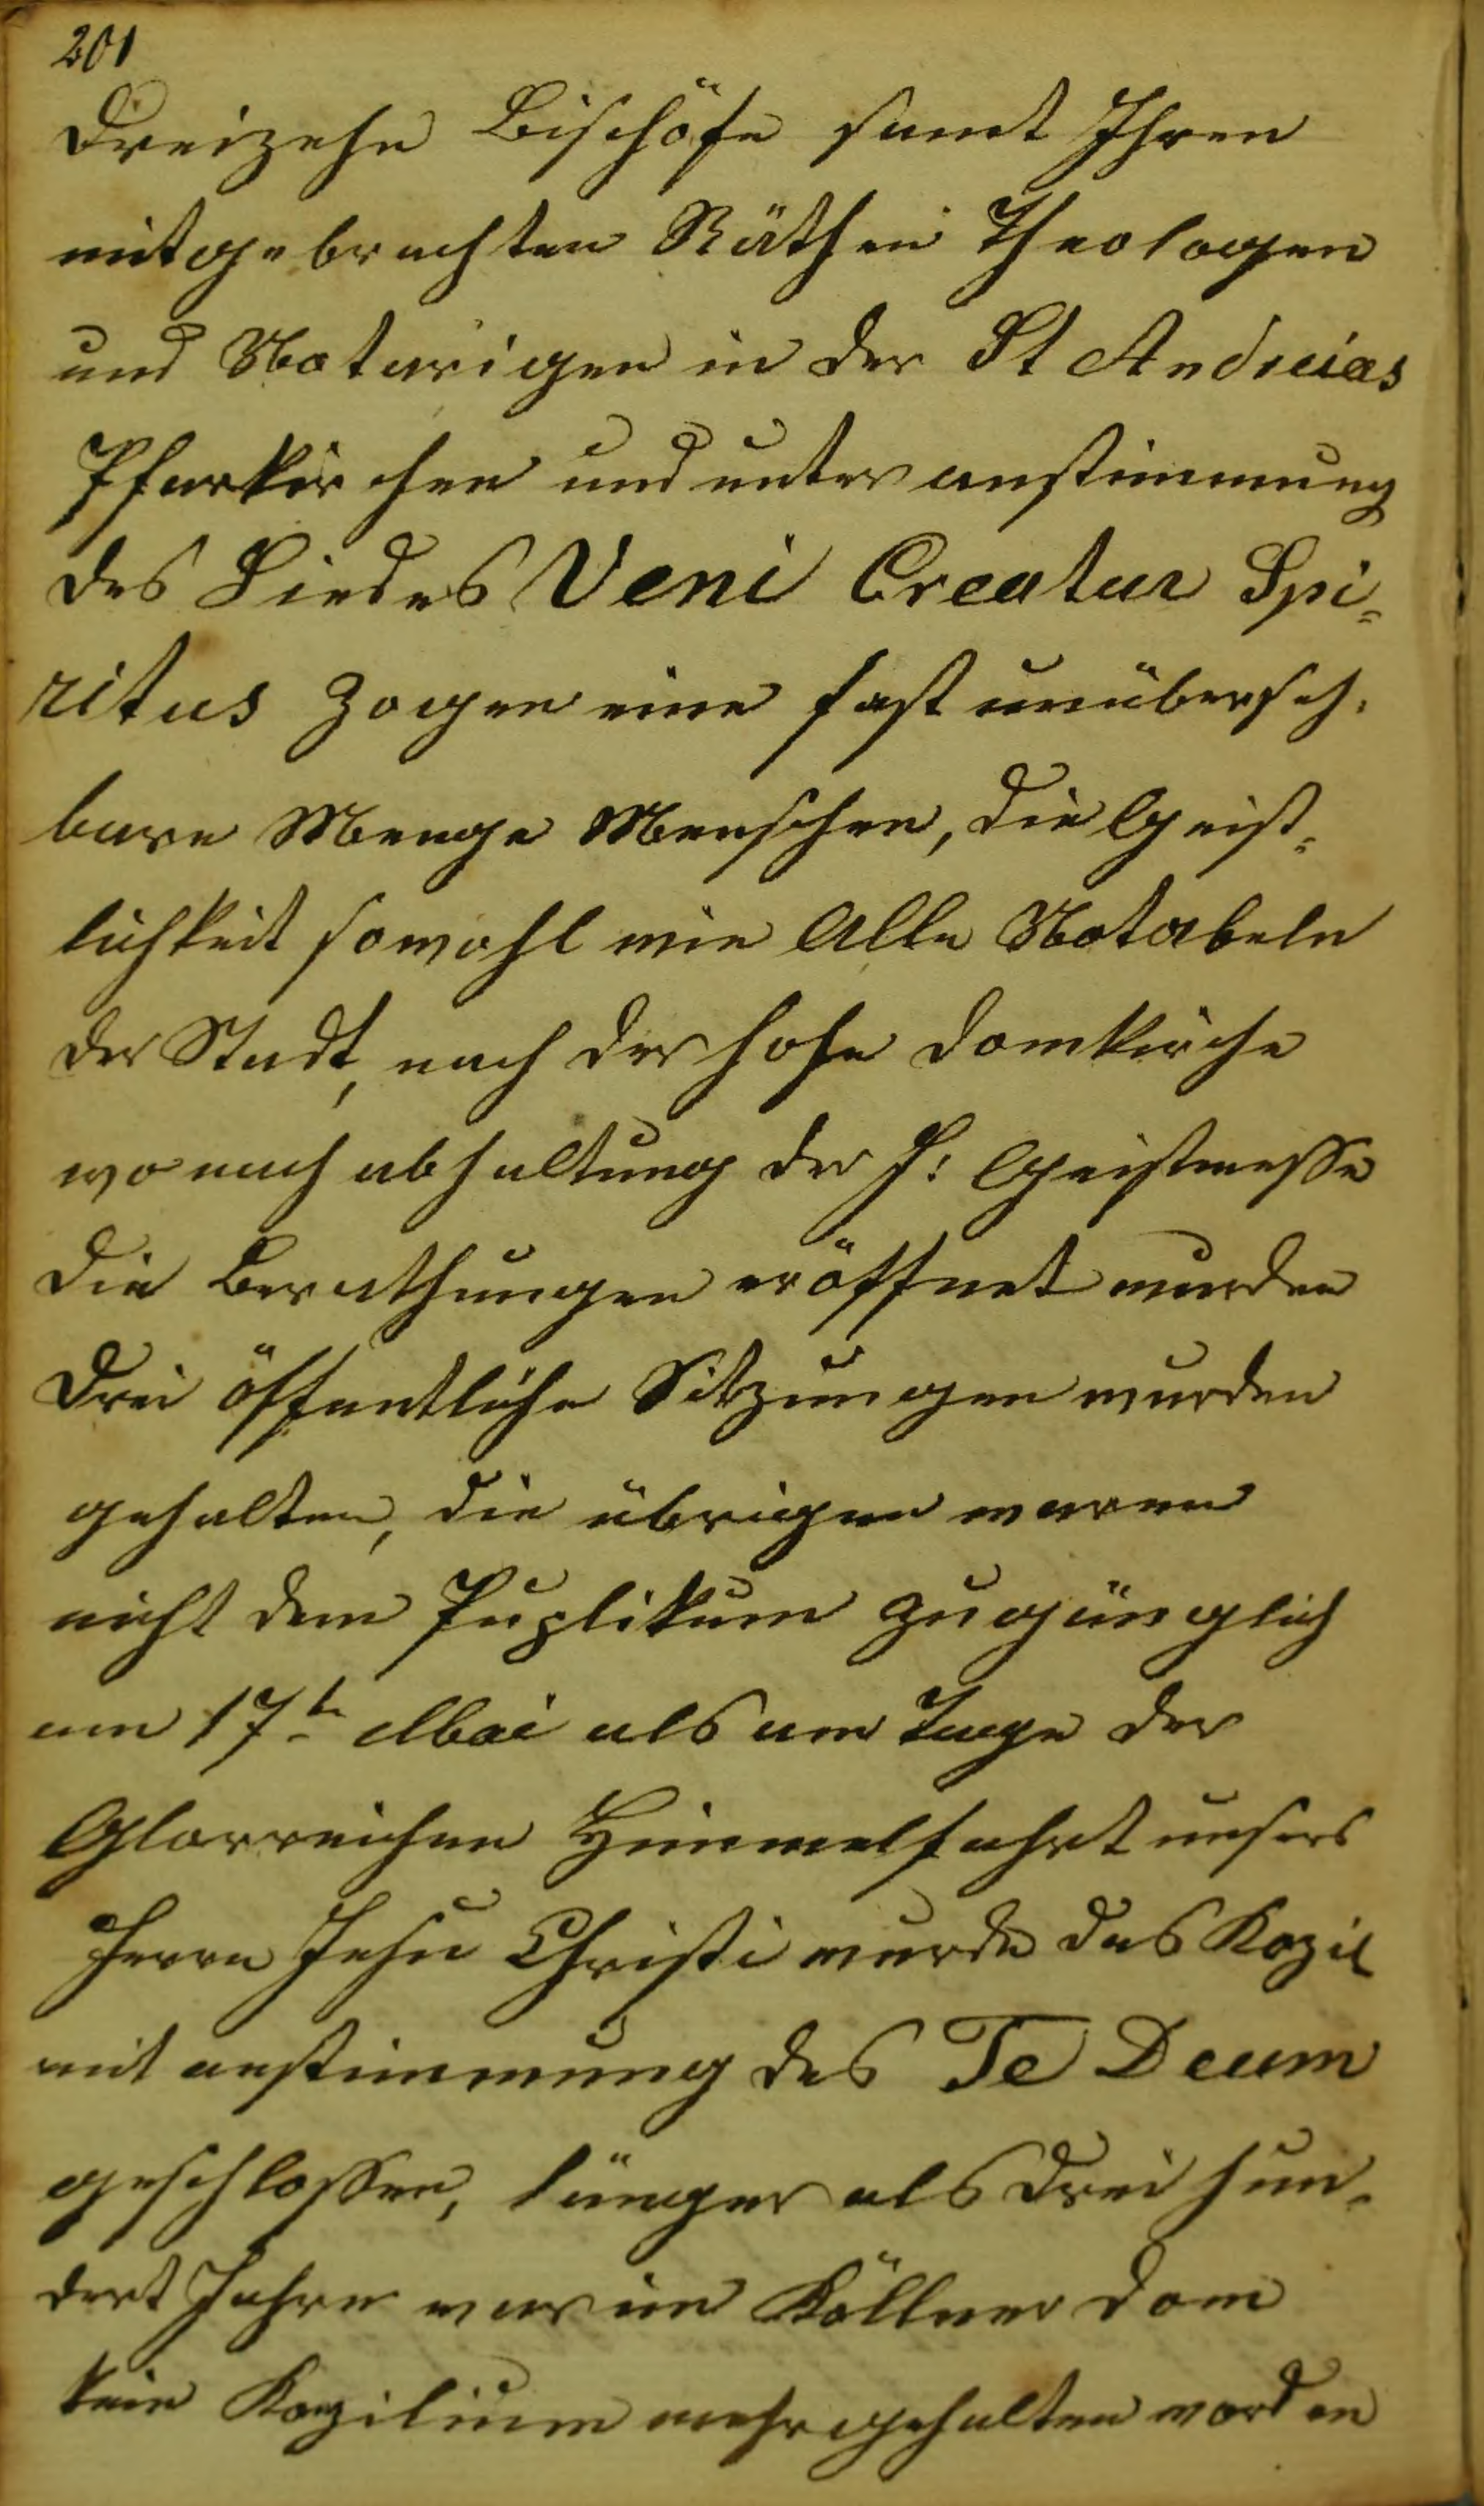 201
Dreizehn Bischöfe samt Ihren
mitgebrachten Räthen Theologen
und Notarigen in der St Andreias
Pfarkirchen und unter anstimmung
des Liedes Veni Creatur Spi-
ritus zogen eine fast unüberseh-
bare Menge Menschen, die Geist-
lichkeit sowohl wie Alle Notabeln
der Stadt, nach der hohe Domkirche
wo nach abhaltung der h: Geistmesse
die Berathungen eröffnet wurden
Drei öffentliche Sitzungen wurden
gehalten, die übrigen waren
nicht dem Puplikum zugänglich
am 17te Mai als am Tage der
Glorreichen Himmelfahrt unsers
Herrn Jesu Christi wurde das Kozil
mit anstimmung des Te Deum
geschlossen, länger als drei hun-
dert Jahre war im Köllner Dom
kein Kozilium mehr gehalten worden